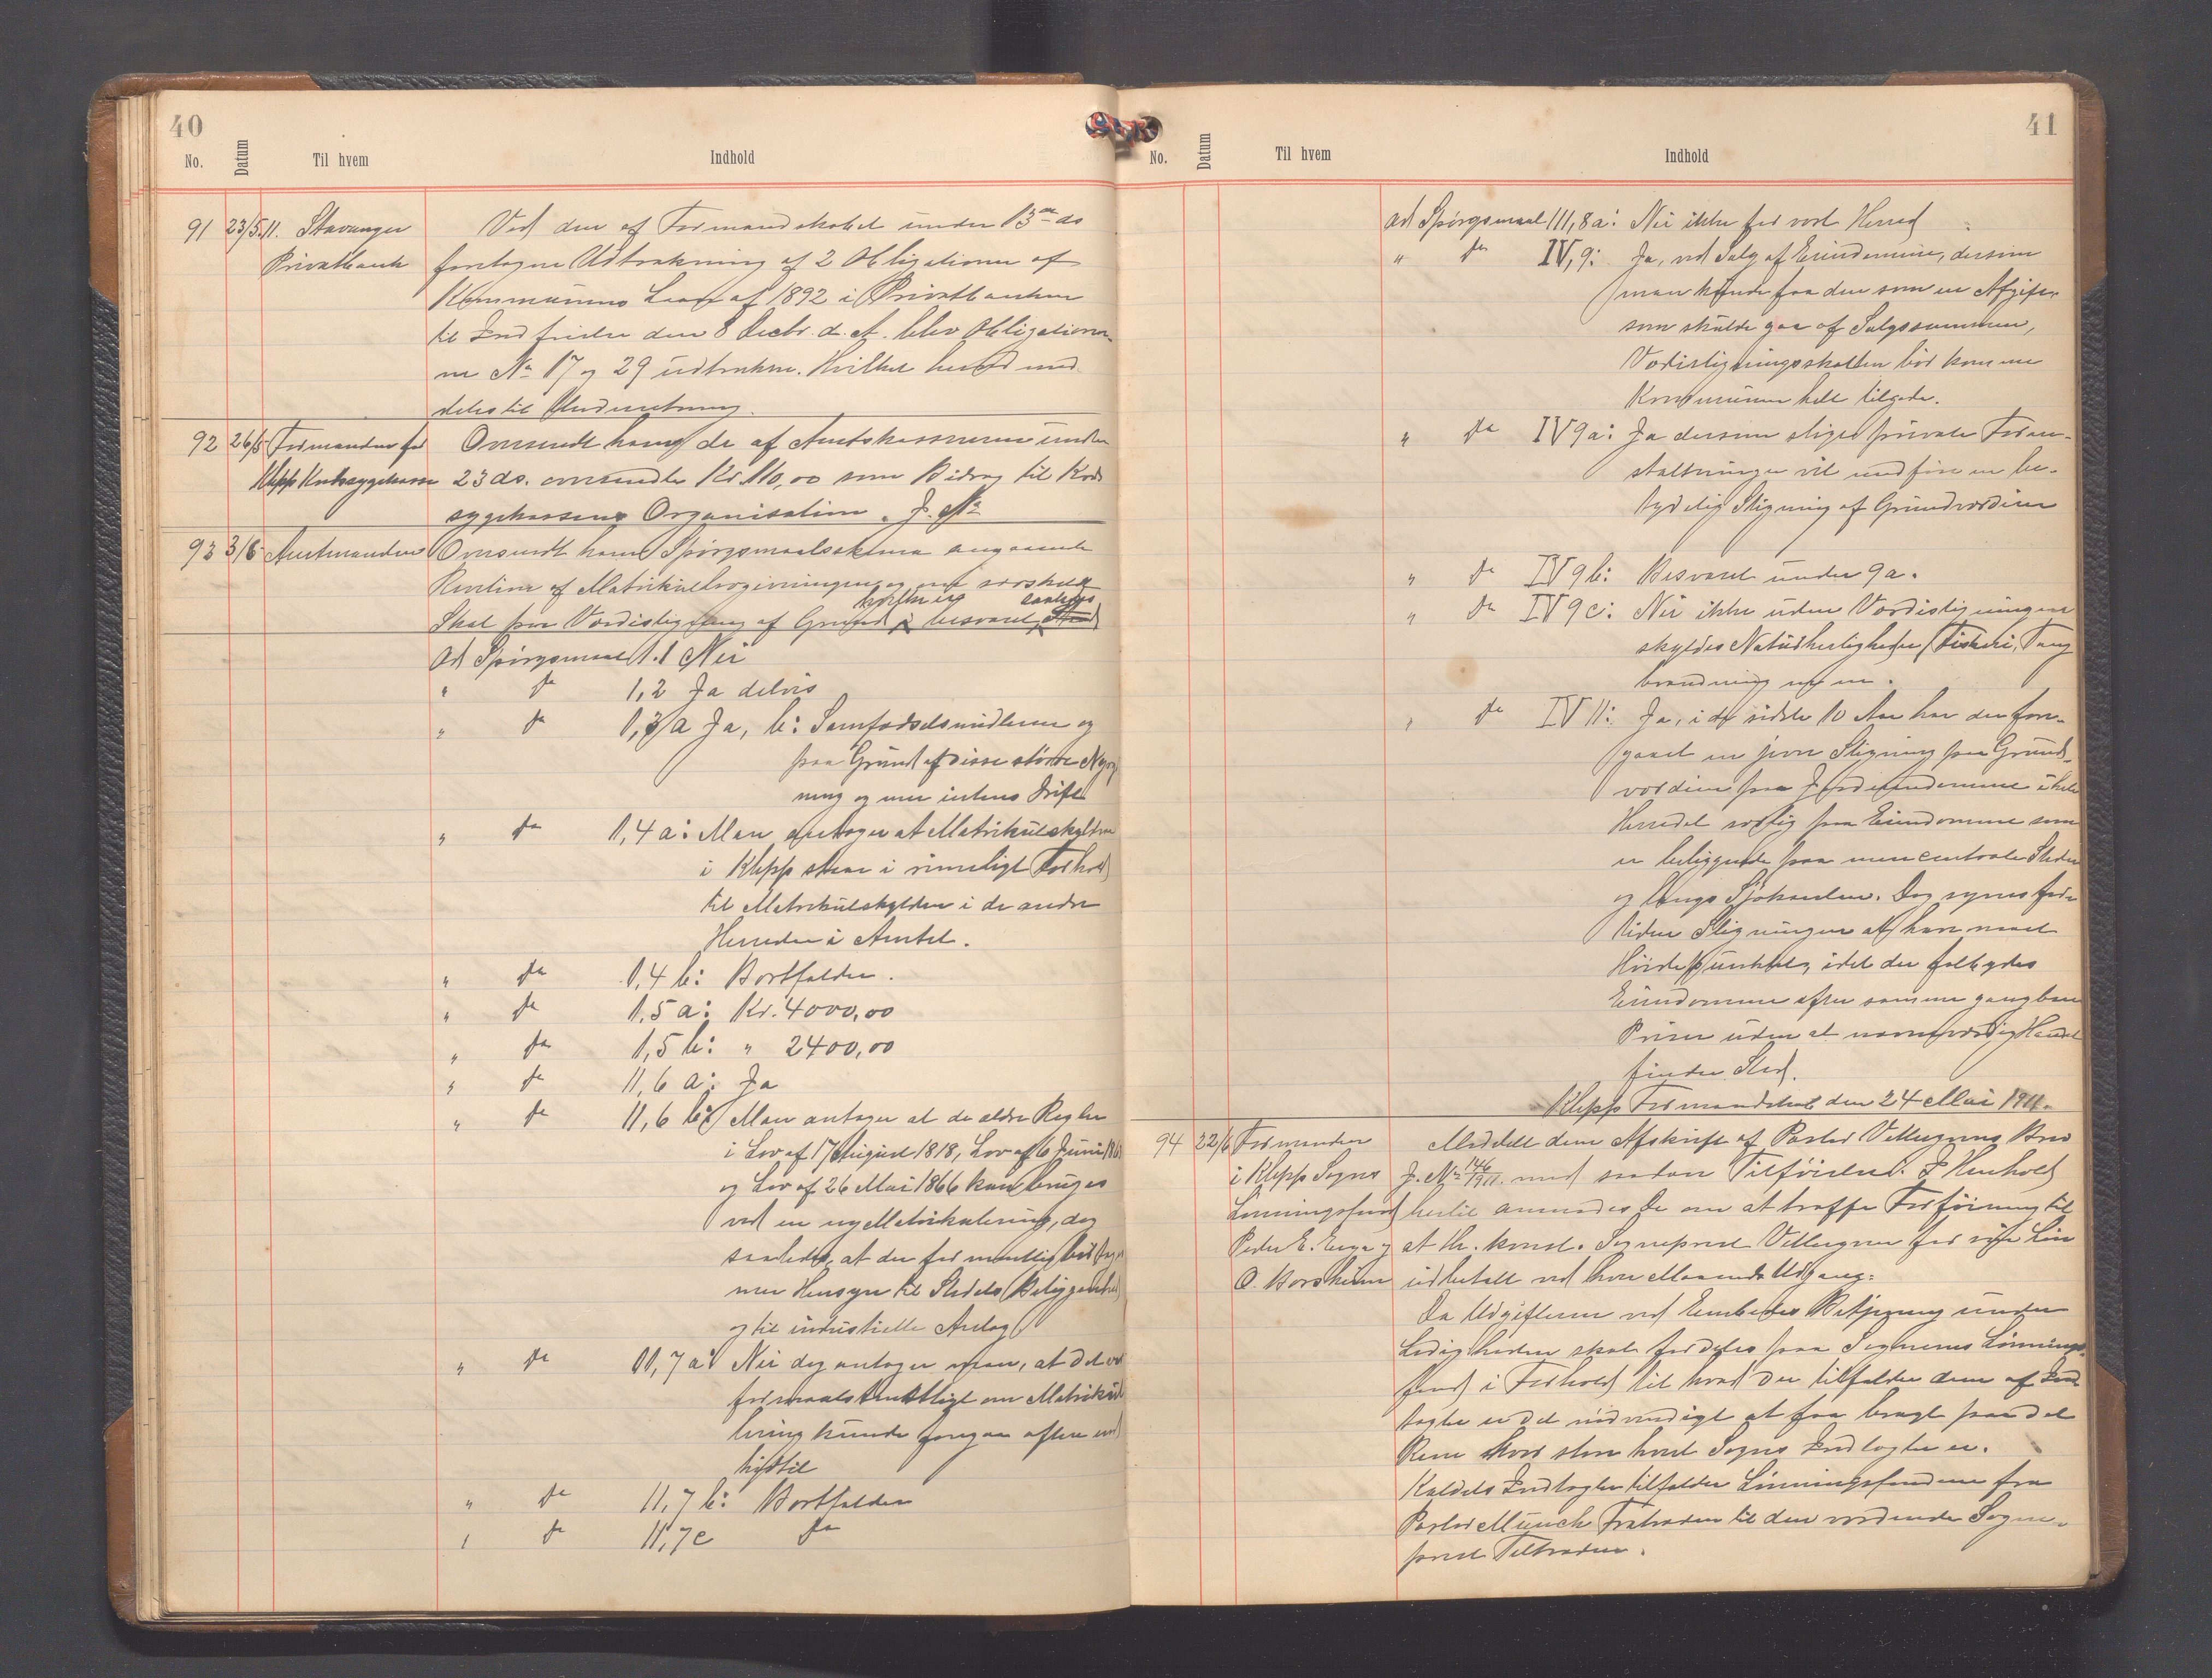 40
No. Datum Til hvem Indhold
91 23/5.11. Stavanger Ved den af Formandskabet under 13de ds
Privatbank foretagne Udtrækning af 2 Obligationer af
Kommunens Laan af 1892 i Privatbanken
til Indfrielse den 8 Decbr. d. A. blev Obligationer-
ne No 17 og 29 udtrukne. Hvilket herved med-
deles til Underretning.
92 26/5 Formanden for Oversendt ham de af Amtskassereren under
Klepp Kredssygekasse 23 ds. oversendte Kr. 110,00 som Bidrag til Kreds
sygekassens Organisation. J. No
93 3/6 Amtmanden Oversendt ham Spørgsmaalsskema angaaende
Revision af Matrikullovgivningen og om særskilt
Skat paa Værdistigning af Grund besvaret saaledes
Ad Spørgsmaal 1.1 Nei
" do 1,2 Ja delvis
" do 1,3 a Ja, b: Samfærdselsmidlerne og
paa Grund af disse større Nyryd
ning og mer intens Drift
" do 1,4 a: Man antager at Matrikulskylden
i Klepp staar i rimeligt Forhold
til Matrikulskylden i de andre
Herreder i Amtet.
" do 1,4 b: Bortfalder.
" do 1,5 a: Kr. 4000,00
" do 1,5 b: " 2400,00
" do 11,6 a: Ja
" do 11,6 b: Man antager at de ældre Regler
i Lov af 17 August 1818, Lov af 6 Juni
og Lov af 26 Mai 1866 kan bruges
ved en ny Matrikulering, dog
saaledes, at der formentlig bør tages
mer Hensyn til Stedets Beliggenhed
og til industrielle Anlæg
" do 11,7 a: Nei dog antager man, at det var
formaalstjenstligt om Matrikule
lering kunde foregaa oftere end
hidtil
" do 11,7 b: Bortfalder
" do 11,7 c do
41
No. Datum Til hvem Indhold
ad Spørgsmaal 111,8 a: Nei ikke for vort Herred
" do IV,9: Ja, ved Salg af Eiendomme, dersom
man kunde faa den som en Afgift
som skulde gaa af Salgssummen,
Værdistigningsskatten bør komme
Kommunen helt tilgode.
" do IV 9a: Ja dersom slige private Foran-
staltninger vil medføre en be-
tydelig Stigning af Grundværdien
" do IV 9b: Besvaret under 9a.
" do IV 9c: Nei ikke uden Værdistigningen
skyldes Naturherligheder (Fiskeri, Tang
brænding m. m.
" do IV 11: Ja, i de sidste 10 Aar har der fore-
gaaet en jevn Stigning paa Grund-
værdien paa Jordeiendomme i hele
Herredet særlig paa Eiendomme som
er beliggende paa mer centrale Steder
og langs Sjøkanten. Dog synes for
tiden Stigningen at have naaet
Høidepunktet, idet der falbydes
Eiendomme efter samme gangbare
Priser uden at nævneværdig Handel
finder Sted.
Klepp Formandskab den 24 Mai 1911.
94 22/6 Formanden Meddelt dem Afskrift af Pastor Vellesens Brev
i Klepp Sogns J. No 146/1911. med saadan Tilføielse: I Henhold
Lønningsfond hertil anmodes De om at træffe Forføining til
Peder E. Erga og at Hr. konst. Sogneprest faar sin Løn
O. Borsheim udbetalt ved hver Maaneds Udgang.
Da Udgifterne ved Embedets Betjening under
Ledigheden skal fordeles paa Sognenes Lønnings-
fond i Forhold til hvad der tilfalder dem af Ind
tægter er det nødvendigt at faa bragt paa det
Rene hvor stor hvert Sogns Indtægter er.
Kaldets Indtægter tilfalder Lønningsfondene fra
Pastor Munch Fratræden til den vordende Sogne-
prest Tiltræden.